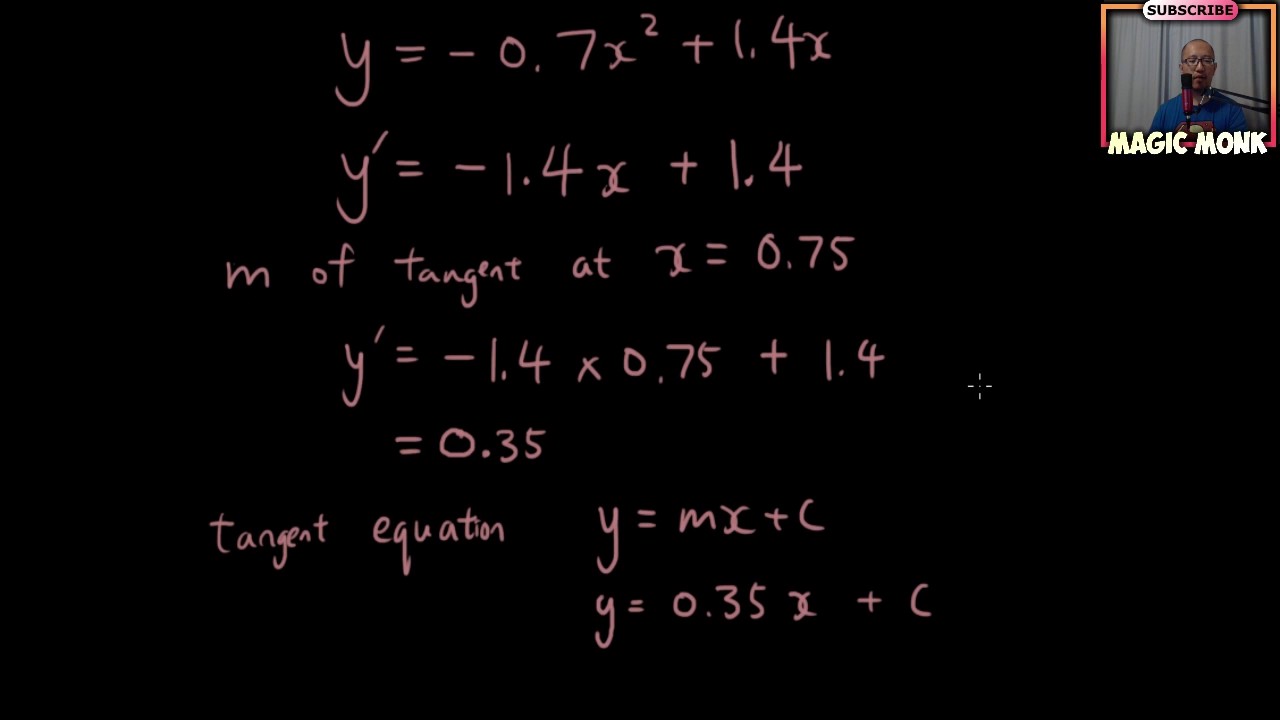 SUBSCRIBE
MAGIC MONK
y = - 0.7x² + 1.4x
y′ = - 1.4x + 1.4
m of tangent at x = 0.75
y′ = - 1.4 × 0.75 + 1.4
= 0.35
tangent equation y = mx + c
y = 0.35x + c